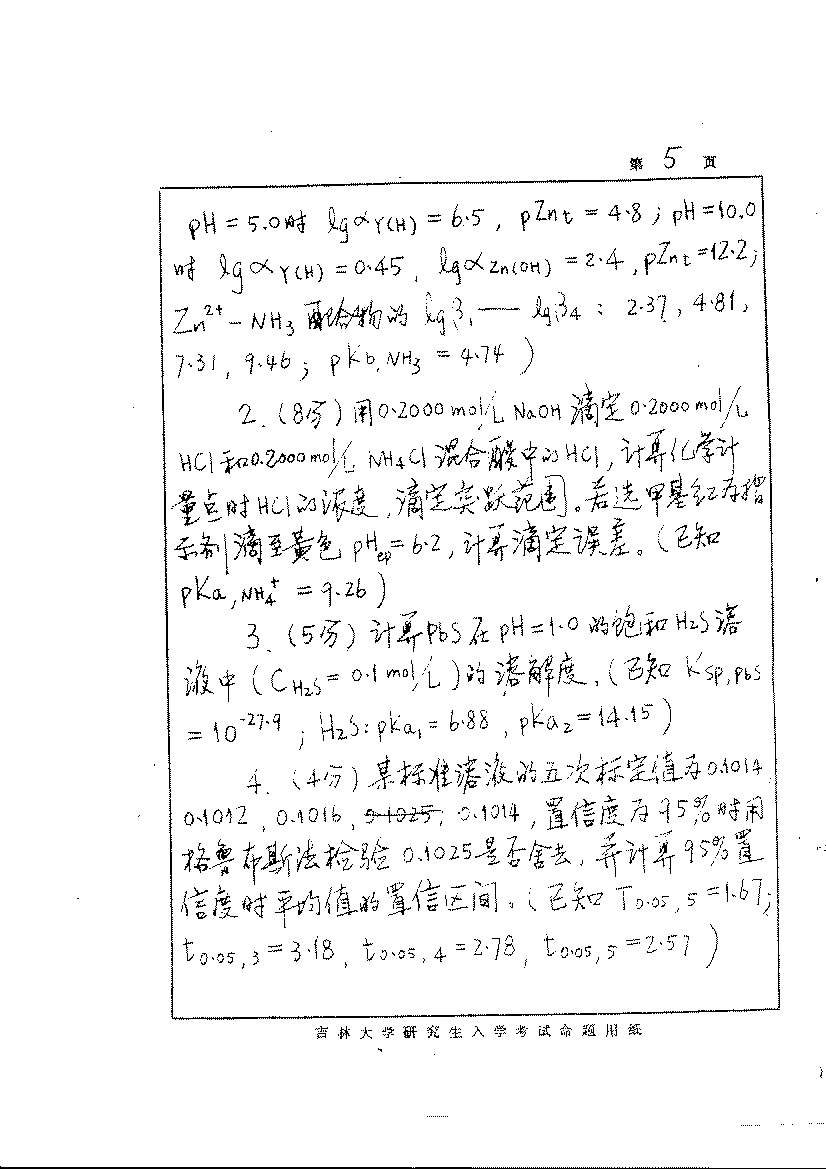 第 5 页
pH = 5.0时 lgαY(H) = 6.5 , pZnt = 4.8 ; pH = 10.0
时 lgαY(H) = 0.45 , lgαZn(OH) = 2.4 , pZnt = 12.2 ;
Zn²⁺ - NH3 配合物的 lgβ1 — lgβ4 : 2.37 , 4.81 ,
7.31 , 9.46 ; pKb,NH3 = 4.74 )
2. (8分) 用0.2000 mol/L NaOH 滴定 0.2000 mol/L
HCl 和 0.2000 mol/L NH4Cl 混合酸中的HCl, 计算化学计
量点时HCl的浓度, 滴定突跃范围。若选甲基红为指
示剂滴至黄色 pHep = 6.2, 计算滴定误差。(已知
pKa,NH4⁺ = 9.26 )
3. (5分) 计算PbS在pH=1.0的饱和H2S溶
液中 (CH2S = 0.1 mol/L) 的溶解度. (已知 Ksp,PbS
= 10^-27.9 ; H2S: pKa1 = 6.88 , pKa2 = 14.15 )
4. (4分) 某标准溶液的五次标定值为0.1014
0.1012 , 0.1016 , 0.1025 , 0.1014 , 置信度为95%时用
格鲁布斯法检验 0.1025是否舍去, 并计算95%置
信度时平均值的置信区间。(已知 T0.05,5 = 1.67 ;
t0.05,3 = 3.18 , t0.05,4 = 2.78 , t0.05,5 = 2.57 )
吉林大学研究生入学考试命题用纸